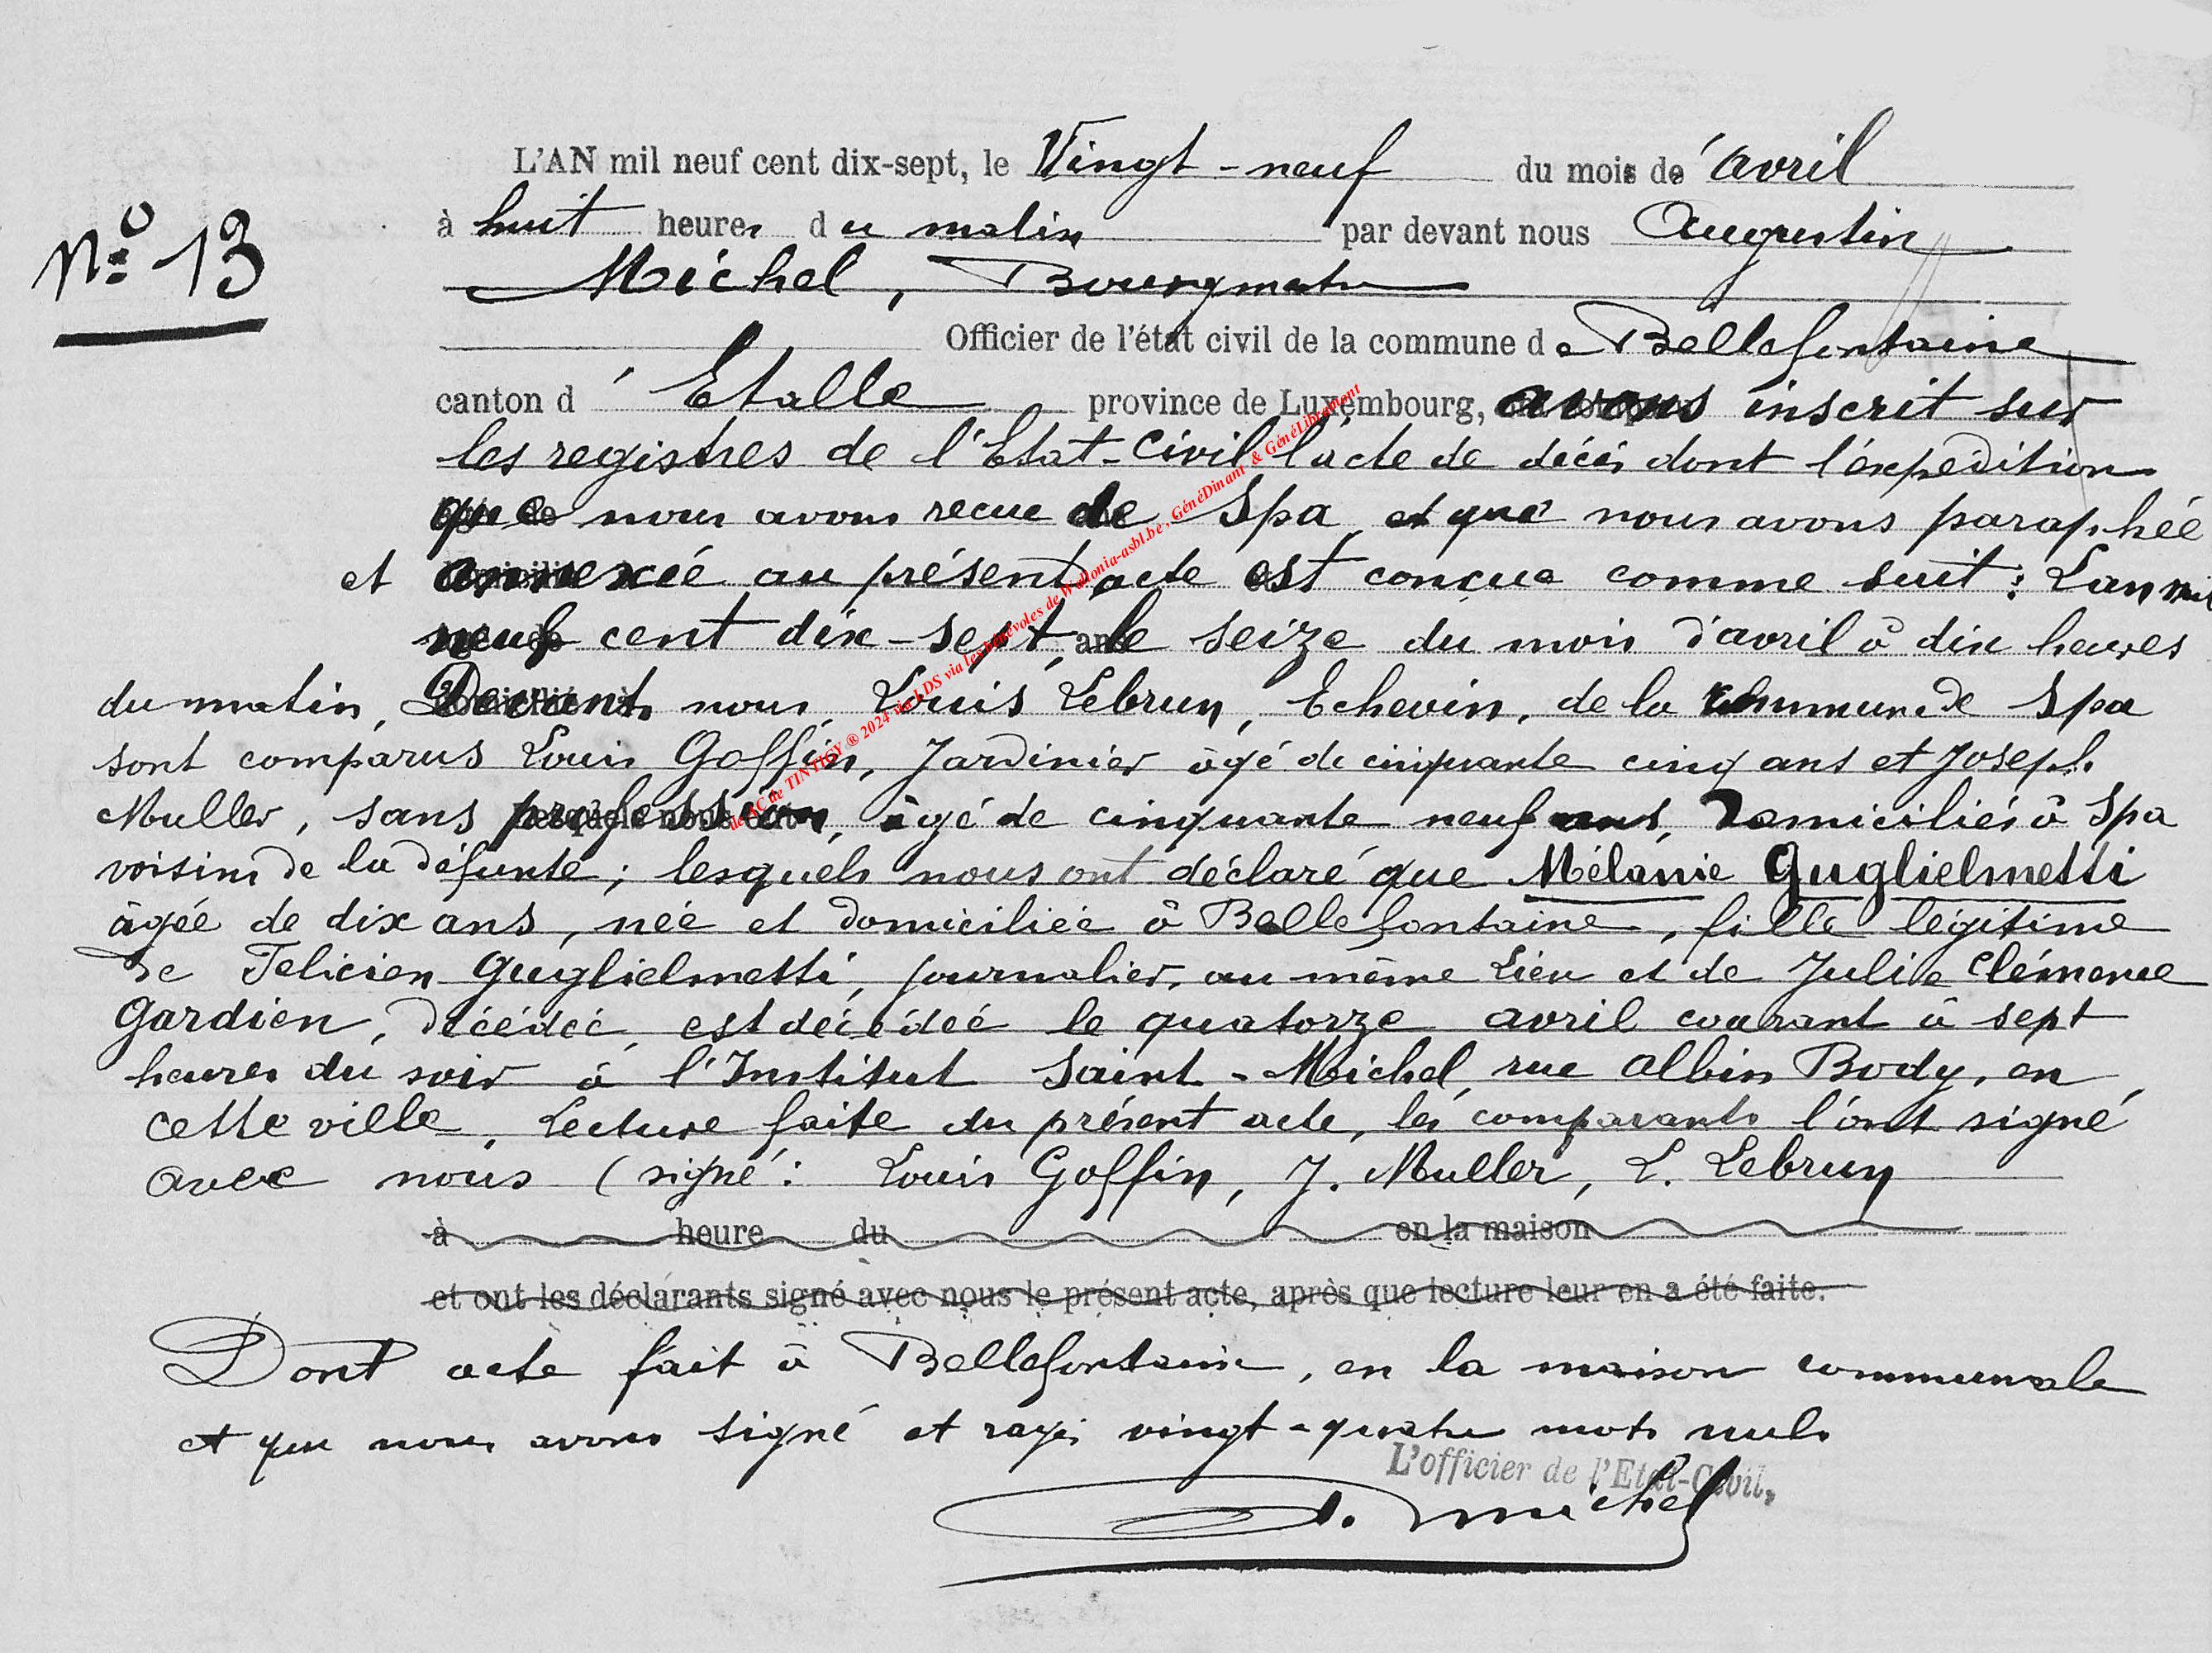 N° 13
L'AN mil neuf cent dix-sept, le Vingt-neuf du mois de Avril
à huit heures du matin par devant nous Augustin
Michel, Bourgmestre
Officier de l'état civil de la commune de Bellefontaine
canton d'Etalle province de Luxembourg, avons inscrit sur
les registres de l'Etat-Civil l'acte de décès dont l'expédition
que nous avons recue de Spa, et que nous avons paraphée
et annexée au présent acte est conçue comme suit : L'an mil
neuf cent dix-sept, le seize du mois d'avril à dix heures
du matin, Devant nous Louis Lebrun, Echevin, de la commune de Spa
sont comparus Louis Goffin, Jardinier âgé de cinquante cinq ans et Joseph
Muller, sans profession, âgé de cinquante neuf ans, Domiciliés à Spa
voisins de la défunte ; lesquels nous ont déclaré que Mélanie Guglielmetti
âgée de dix ans, née et domiciliée à Bellefontaine, fille légitime
de Felicien Guglielmetti, journalier, au même Lieu et de Julie Clémence
Gardien, décédée, est décédée le quatorze avril courant à sept
heures du soir à l'Institut Saint-Michel, rue Albin Body, en
cette ville. Lecture faite du présent acte, les comparants l'ont signé
avec nous (signé : Louis Goffin, J. Muller, L. Lebrun
à heure du en la maison
et ont les déclarants signé avec nous le présent acte, après que lecture leur en a été faite.
Dont acte fait à Bellefontaine, en la maison communale
et que nous avons signé et rayé vingt-quatre mots nuls
L'officier de l'Etat-Civil,
A. Michel
de AC de TINTIGY ® 2024 via LDS via les bénévoles de Wallonia-asbl.be, GénéDinant & GénéLibramont